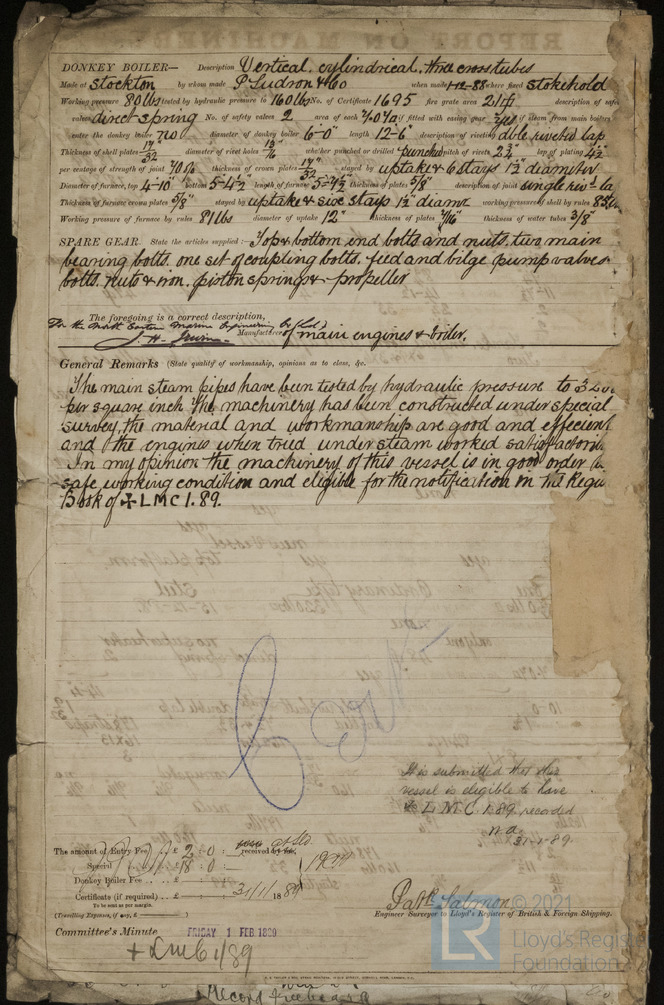 DONKEY BOILER— Description Vertical, cylindrical, three cross tubes
Made at Stockton by whom made P Ludron & Co when made 1-12-88 where fixed Stokehold
Working pressure 80 lbs tested by hydraulic pressure to 160 lbs No. of Certificate 1695 fire grate area 21 description of safe
valves direct spring No. of safety valves 2 area of each 7.07 if fitted with casing gear yes if steam from main boilers
enter the donkey boiler no diameter of donkey boiler 6-0" length 12-6" description of riveting dble riveted lap
Thickness of shell plates 17/32" diameter of rivet holes 13/16" whether punched or drilled punched pitch of rivets 2 3/4" lap of plating 4 1/2"
per centage of strength of joint 70% thickness of crown plates 17/32" stayed by uptake & 6 stays 1 1/2" diameter
Diameter of furnace, top 4-10" bottom 5-4 1/2" length of furnace 5-4 1/2" thickness of plates 5/8" description of joint single rivd la
Thickness of furnace crown plates 5/8" stayed by uptake & six stays 1 1/2" diamr working pressure of shell by rules 83
Working pressure of furnace by rules 81 lbs diameter of uptake 12" thickness of plates 7/16" thickness of water tubes 3/8"
SPARE GEAR. State the articles supplied:— Top & bottom end bolts and nuts, two main
bearing bolts, one set of coupling bolts, feed and bilge pump valves
bolts, nuts & iron, piston springs & propeller
The foregoing is a correct description,
For the North Eastern Marine Engineering Co (Ltd)
J. H. Irwin. Manufacturer of main engines & boiler.
General Remarks (State quality of workmanship, opinions as to class, &c.
The main steam pipes have been tested by hydraulic pressure to 320
per square inch The machinery has been constructed under special
survey, the material and workmanship are good and effecient
and the engines when tried under steam worked satisfactorily
In my opinion the machinery of this vessel is in good order &
safe working condition and eligible for the notification in the Regi
Book of ✠ LMC 1.89.
It is submitted that this
vessel is eligible to have
✠ L M C 1.89 recorded
31-1-89.
The amount of Entry Fee .. £ 2 : 0 : received by me,
Special .. £ 18 : 0 :
Donkey Boiler Fee .. £ : :
Certificate (if required) .. £ : : 31/1/1889
To be sent as per margin.
(Travelling Expenses, if any, £ )
Patk Salmon
Engineer Surveyor to Lloyd's Register of British & Foreign Shipping.
Committee's Minute FRIDAY 1 FEB 1889
+ LMC 1/89
© 2021
LR Lloyd's Register
Foundation